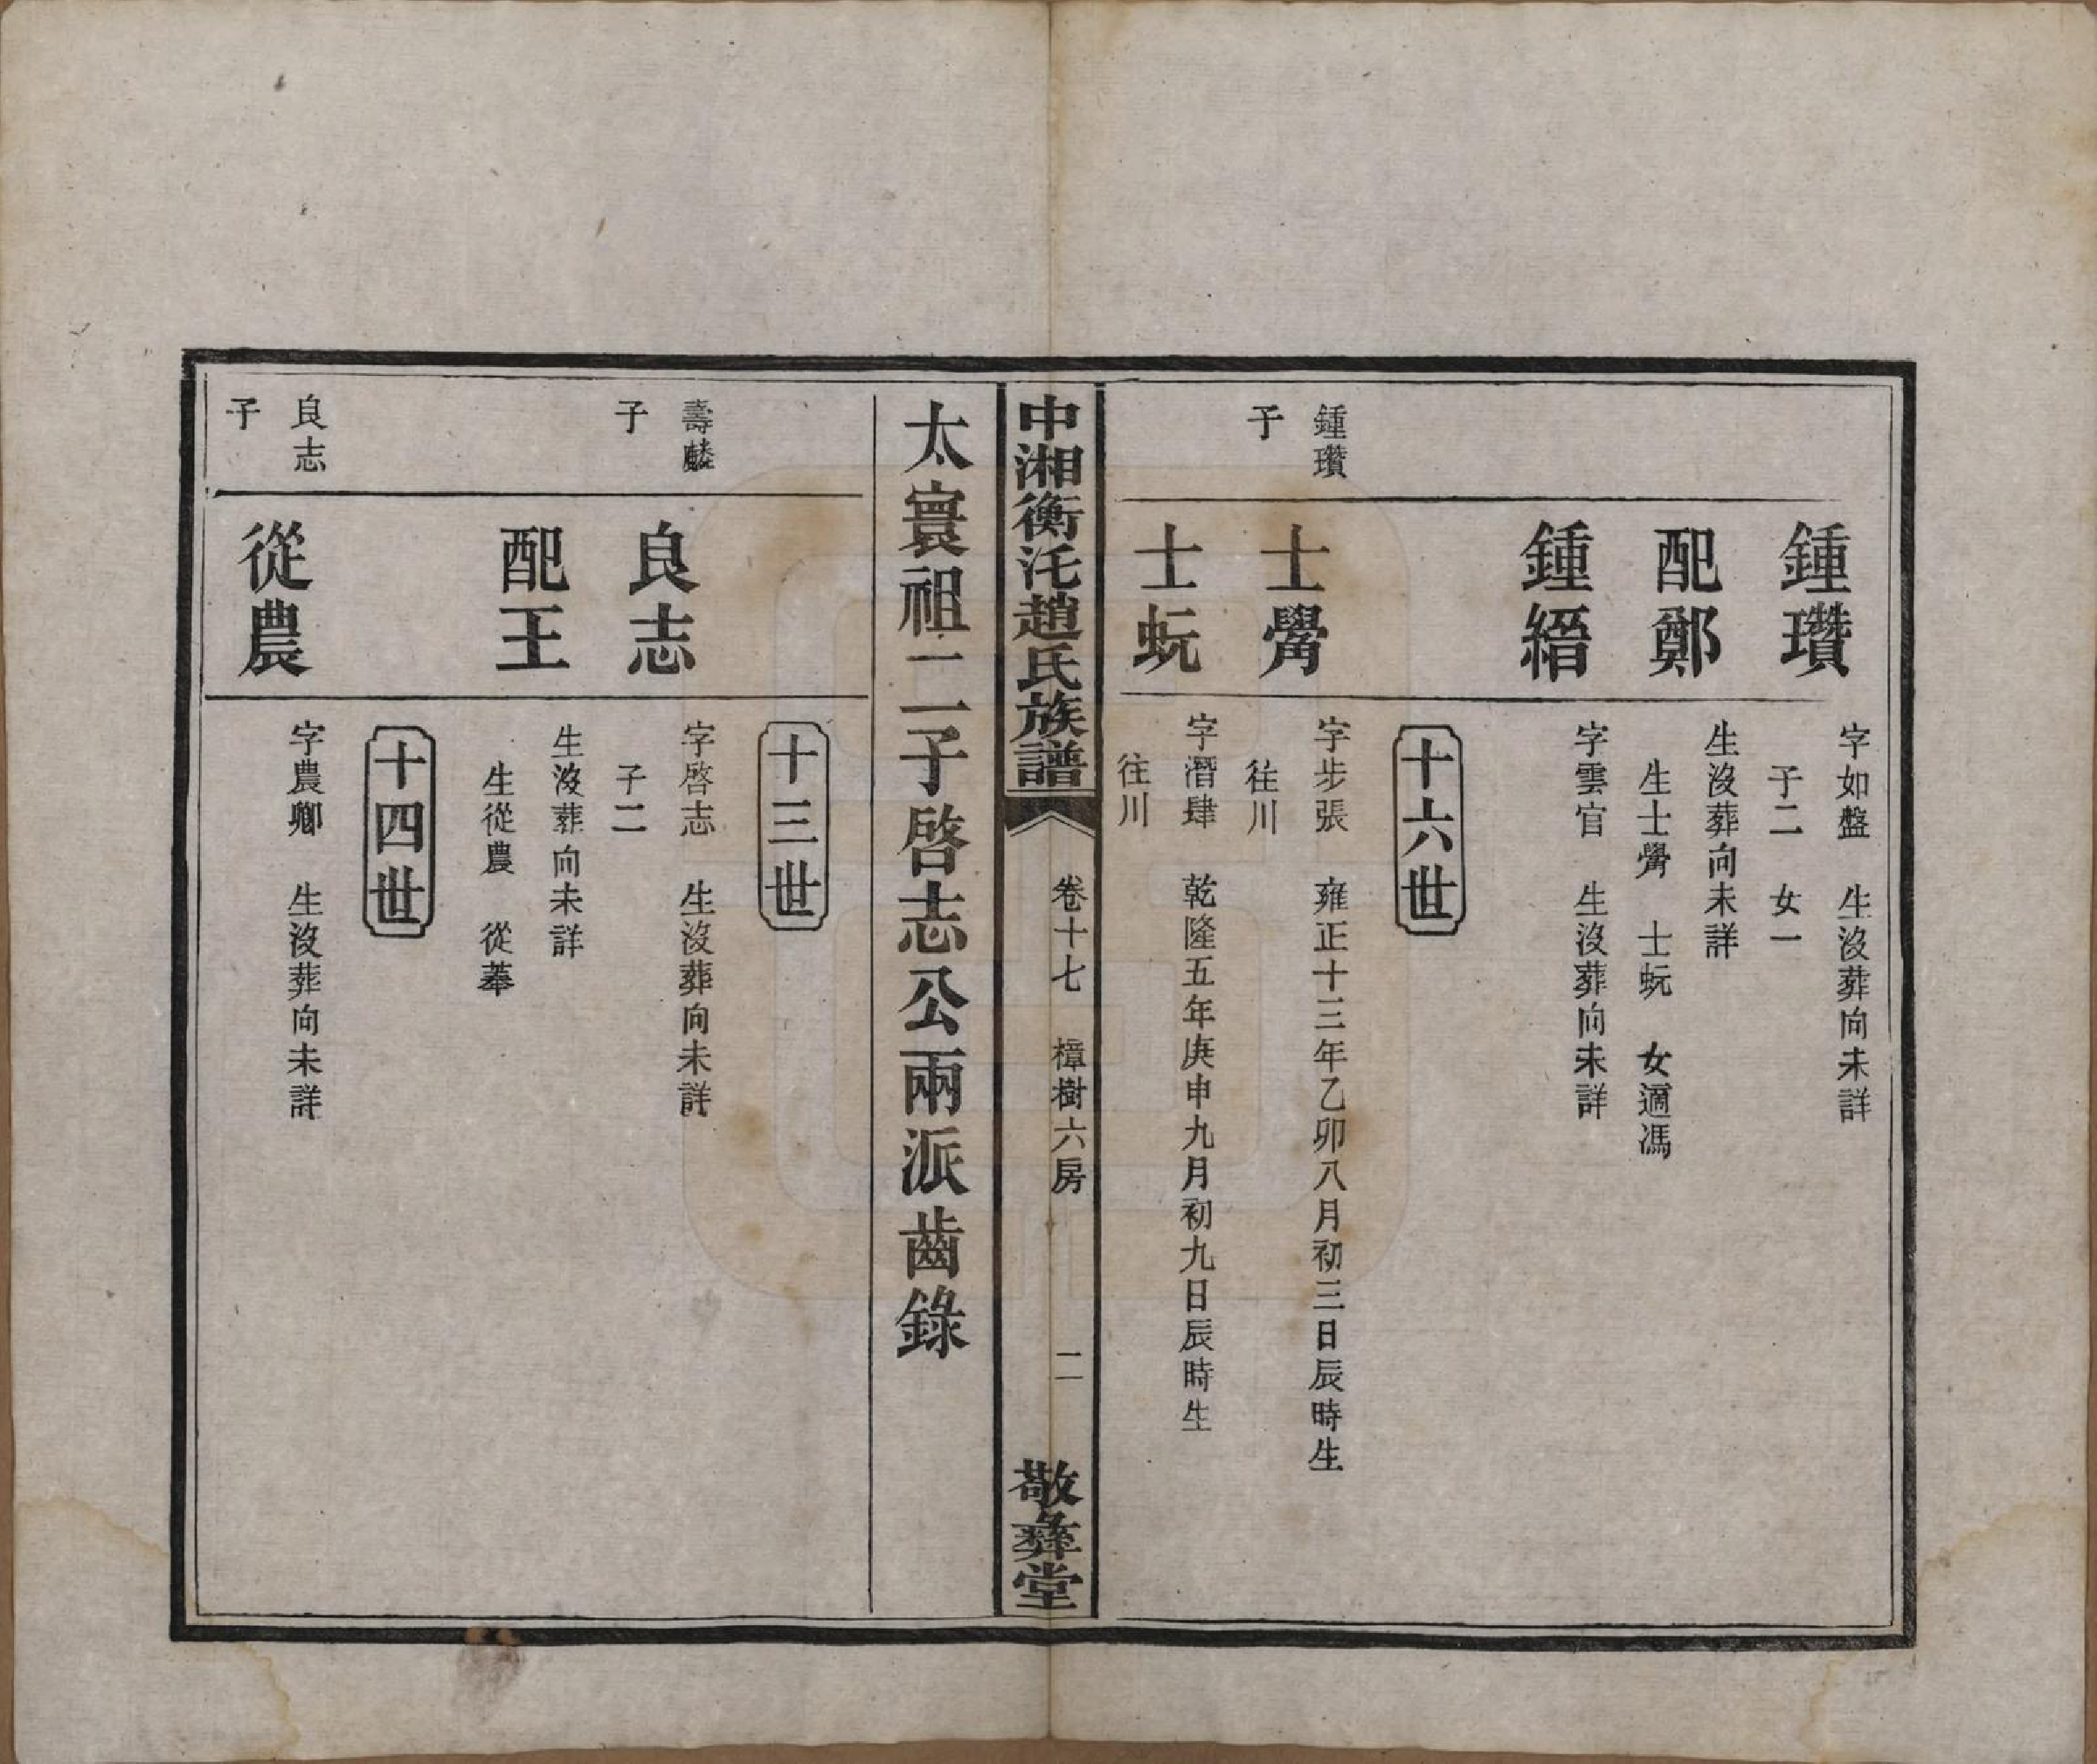 鍾瓚
字如盤　生沒葬向未詳
子二　女一
配鄭
生沒葬向未詳
生士觷　士蚖　女適馮
鍾縉
字雲官　生沒葬向未詳
十六世
鍾瓚
子
士觷
字步張　雍正十三年乙卯八月初三日辰時生
往川
士蚖
字潛肆　乾隆五年庚申九月初九日辰時生
往川
中湘衡汑趙氏族譜
卷十七　樟樹六房
二
敬彝堂
太寰祖二子啓志公兩派齒錄
十三世
壽麟
子
良志
字啓志　生沒葬向未詳
子二
配王
生沒葬向未詳
生從農　從菶
十四世
良志
子
從農
字農卿　生沒葬向未詳